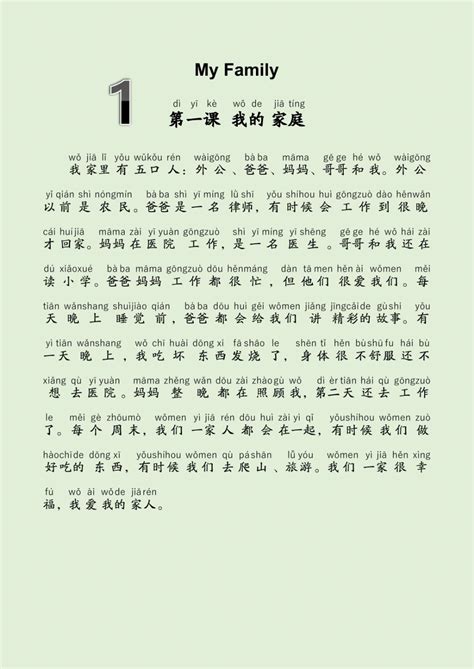 My Family
1
dì yí kè wǒ de jiā tíng
第一课 我的 家庭
wǒ jiā lǐ yǒu wǔkǒu rén wàigōng bàba māma gē ge hé wǒ wàigōng
我家里有五口人：外公、爸爸、妈妈、哥哥和我。外公
yǐ qián shì nóngmín bàba shì yì míng lǜ shī yǒu shíhou huì gōngzuò dào hěnwǎn
以前是农民。爸爸是一名律师，有时候会工作到很晚
cái huíjiā māma zài yī yuàn gōngzuò shì yì míng yī shēng gē ge hé wǒ hái zài
才回家。妈妈在医院 工作，是一名医生。哥哥和我还在
dú xiǎoxué bàba māma gōngzuò dōu hěnmáng dàn tā men hěn ài wǒmen měi
读小学。爸爸妈妈 工作 都很忙，但他们很爱我们。每
tiān wǎnshang shuìjiào qián bàba dōu huì gěi wǒmen jiǎng jīngcǎide gù shi yǒu
天晚上 睡觉前，爸爸都会给我们 讲 精彩的故事。有
yì tiān wǎnshang wǒ chī huài dōng xi fā shāo le shēn tǐ hěn bùshū fu hái bù
一天晚上，我吃坏 东西发烧了，身体很不舒服还不
xiǎng qù yī yuàn māma zhěng wǎn dōu zài zhàogù wǒ dì èrtiān hái qù gōngzuò
想去医院。妈妈 整晚都在照顾我，第二天还去工作
le měi gè zhōumò wǒmen yì jiā rén dōu huì zài yì qǐ yǒushíhou wǒmen zuò
了。每个周末，我们一家人都会在一起，有时候我们做
hàochīde dōng xi yǒushíhou wǒmen qù páshān lǚ yóu wǒmen yì jiā hěn xìng
好吃的 东西，有时候我们去爬山、旅游。我们一家很幸
fú wǒ ài wǒde jiārén
福，我爱我的家人。